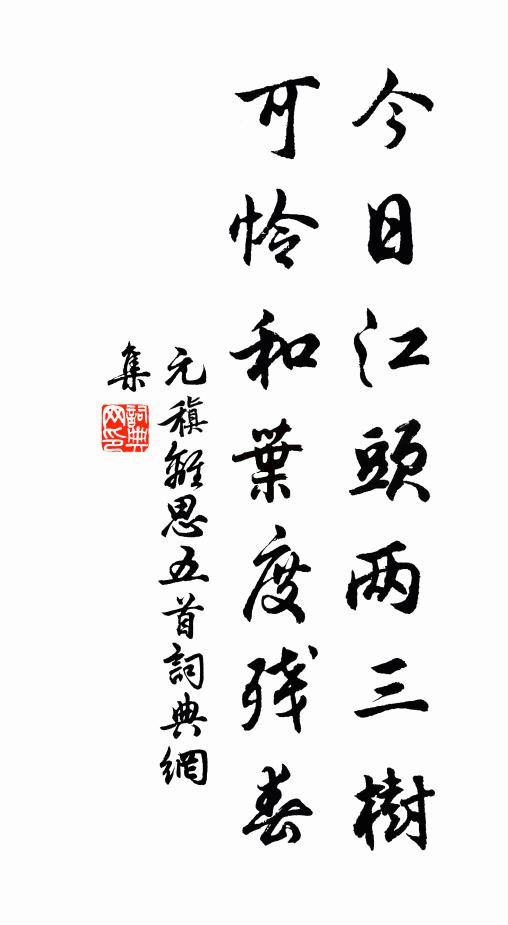 今日江頭两三樹
可怜和葉度残春
元稹離思五首詞典網
集
詞典
网印